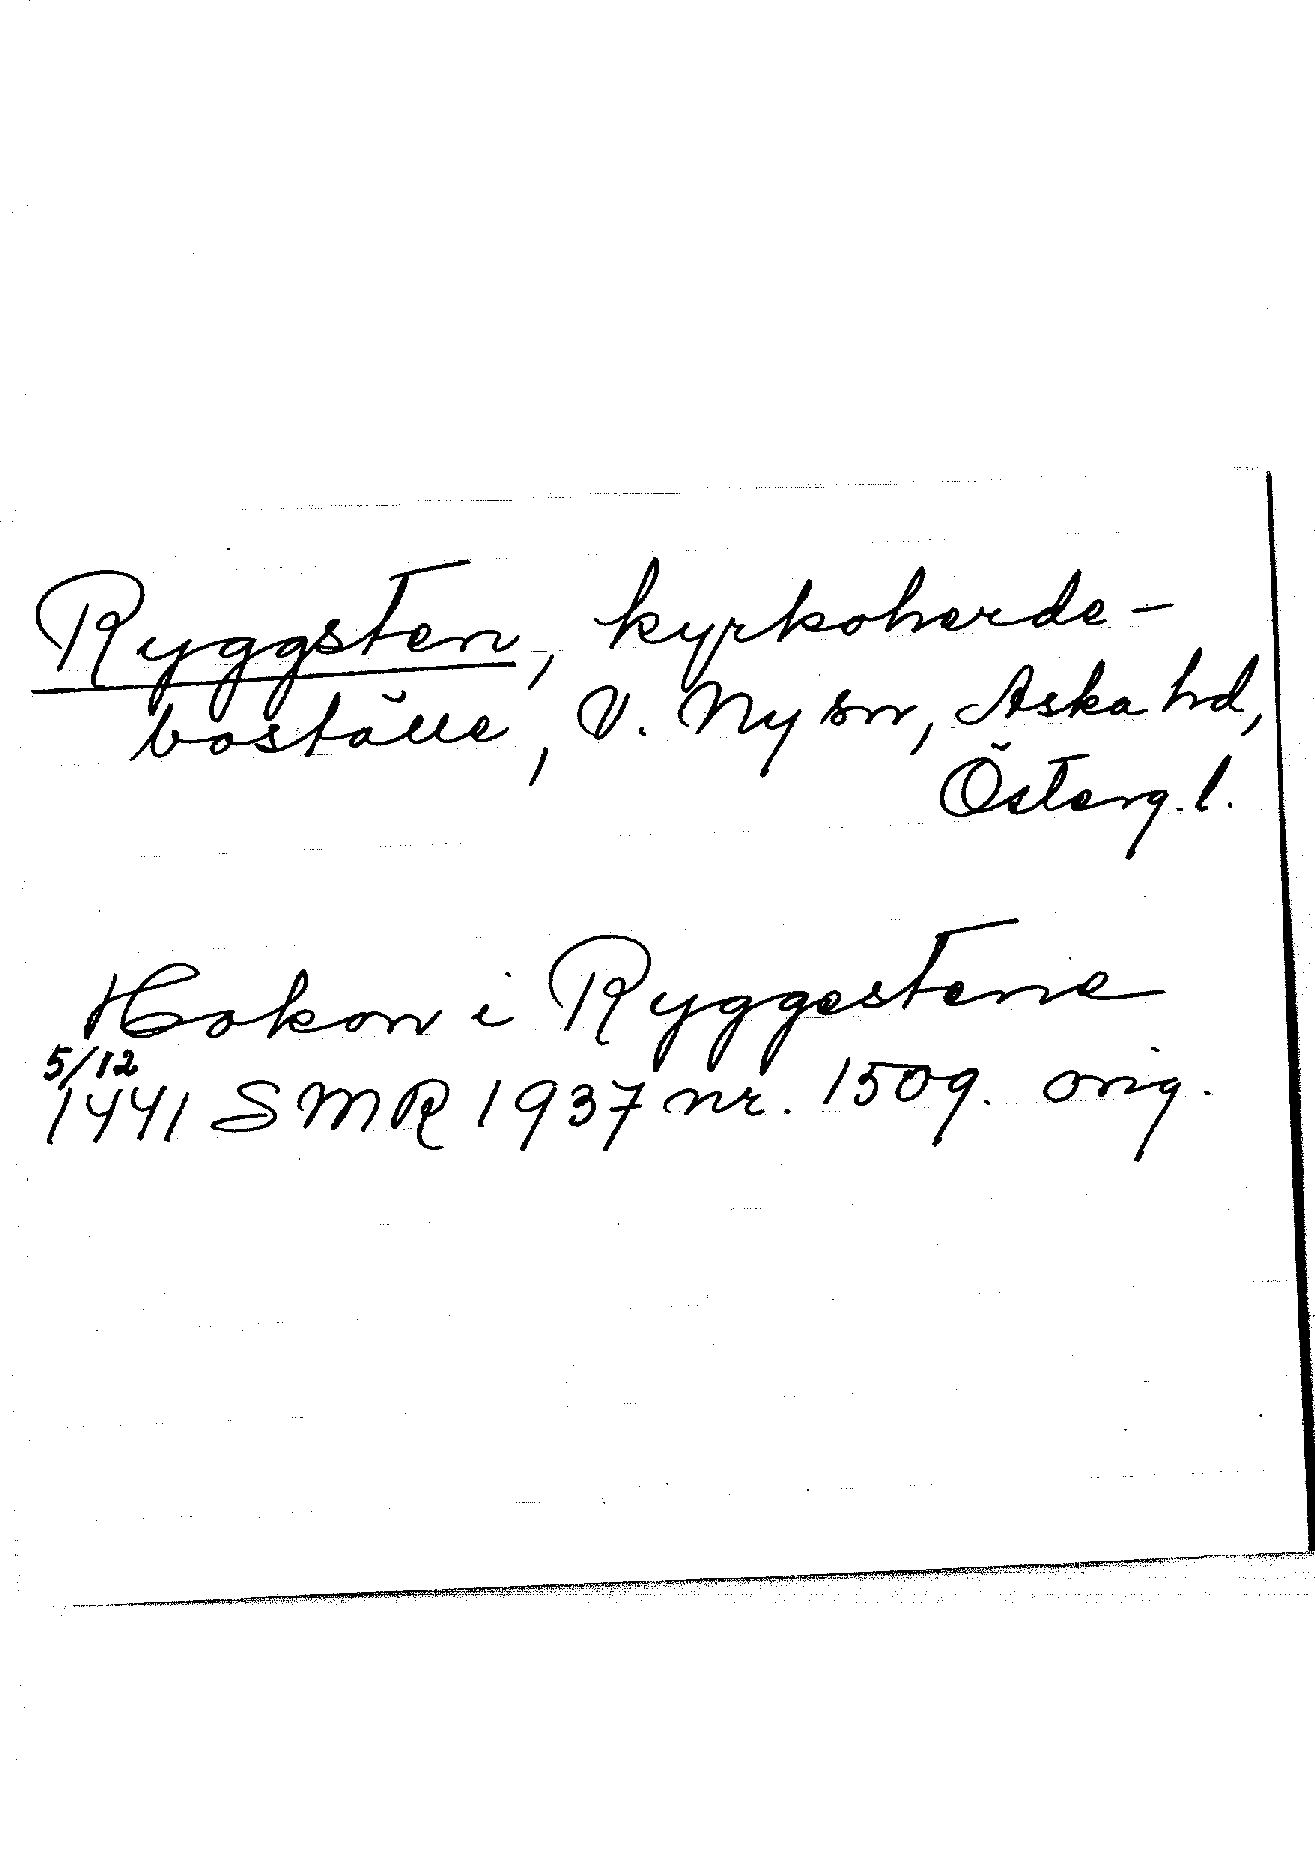 Ryggsten, kyrkoherde-
boställe, V. Ny sn, Aska hd,
Österg. l.
Hakon i Ryggestene
5/12
1441 SMR 1937 nr. 1509. orig.